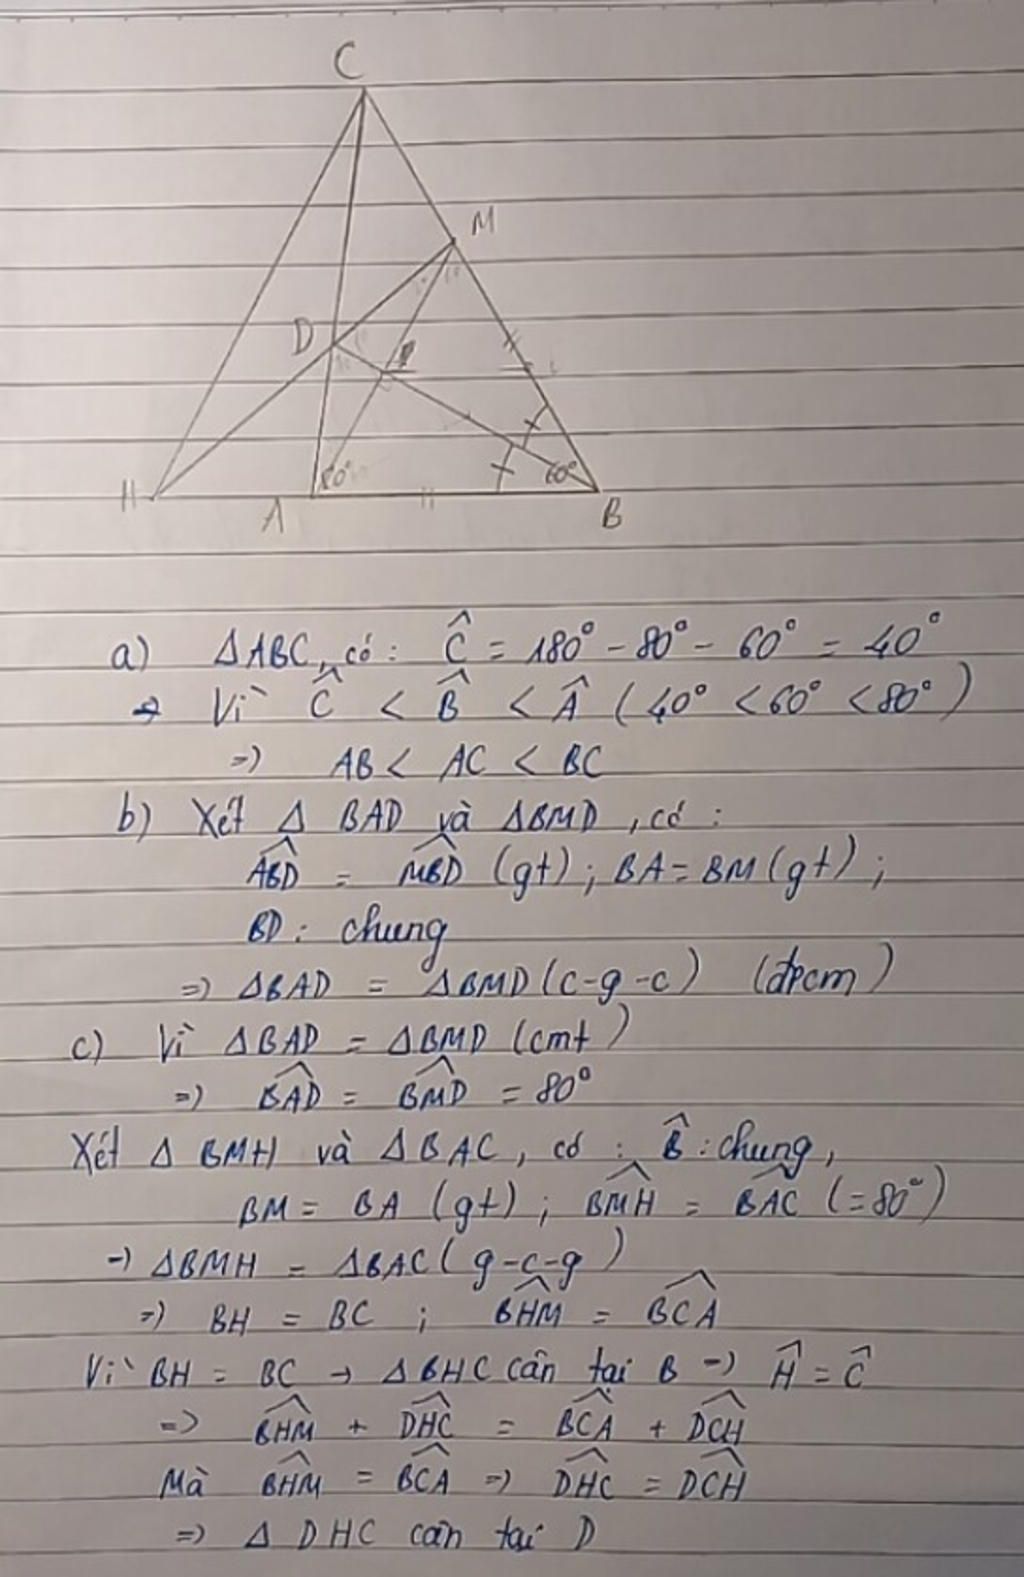 C
M
D
80°
60°
H
A
B
a) ΔABC, có: Ĉ = 180° - 80° - 60° = 40°
Vì Ĉ < B̂ < Â (40° < 60° < 80°)
=) AB < AC < BC
b) Xét Δ BAD và ΔBMD, có:
ABD̂ = MBD̂ (gt); BA = BM (gt);
BD: chung
=) ΔBAD = ΔBMD (c-g-c) (đpcm)
c) Vì ΔBAD = ΔBMD (cmt)
=) BAD̂ = BMD̂ = 80°
Xét Δ BMH và ΔBAC, có: B̂: chung,
BM = BA (gt); BMĤ = BAĈ (=80°)
-) ΔBMH = ΔBAC (g-c-g)
=) BH = BC; BHM̂ = BCÂ
Vì BH = BC → ΔBHC cân tại B =) Ĥ = Ĉ
=> BHM̂ + DHĈ = BCÂ + DCĤ
Mà BHM̂ = BCÂ =) DHĈ = DCĤ
=) Δ DHC cân tại D